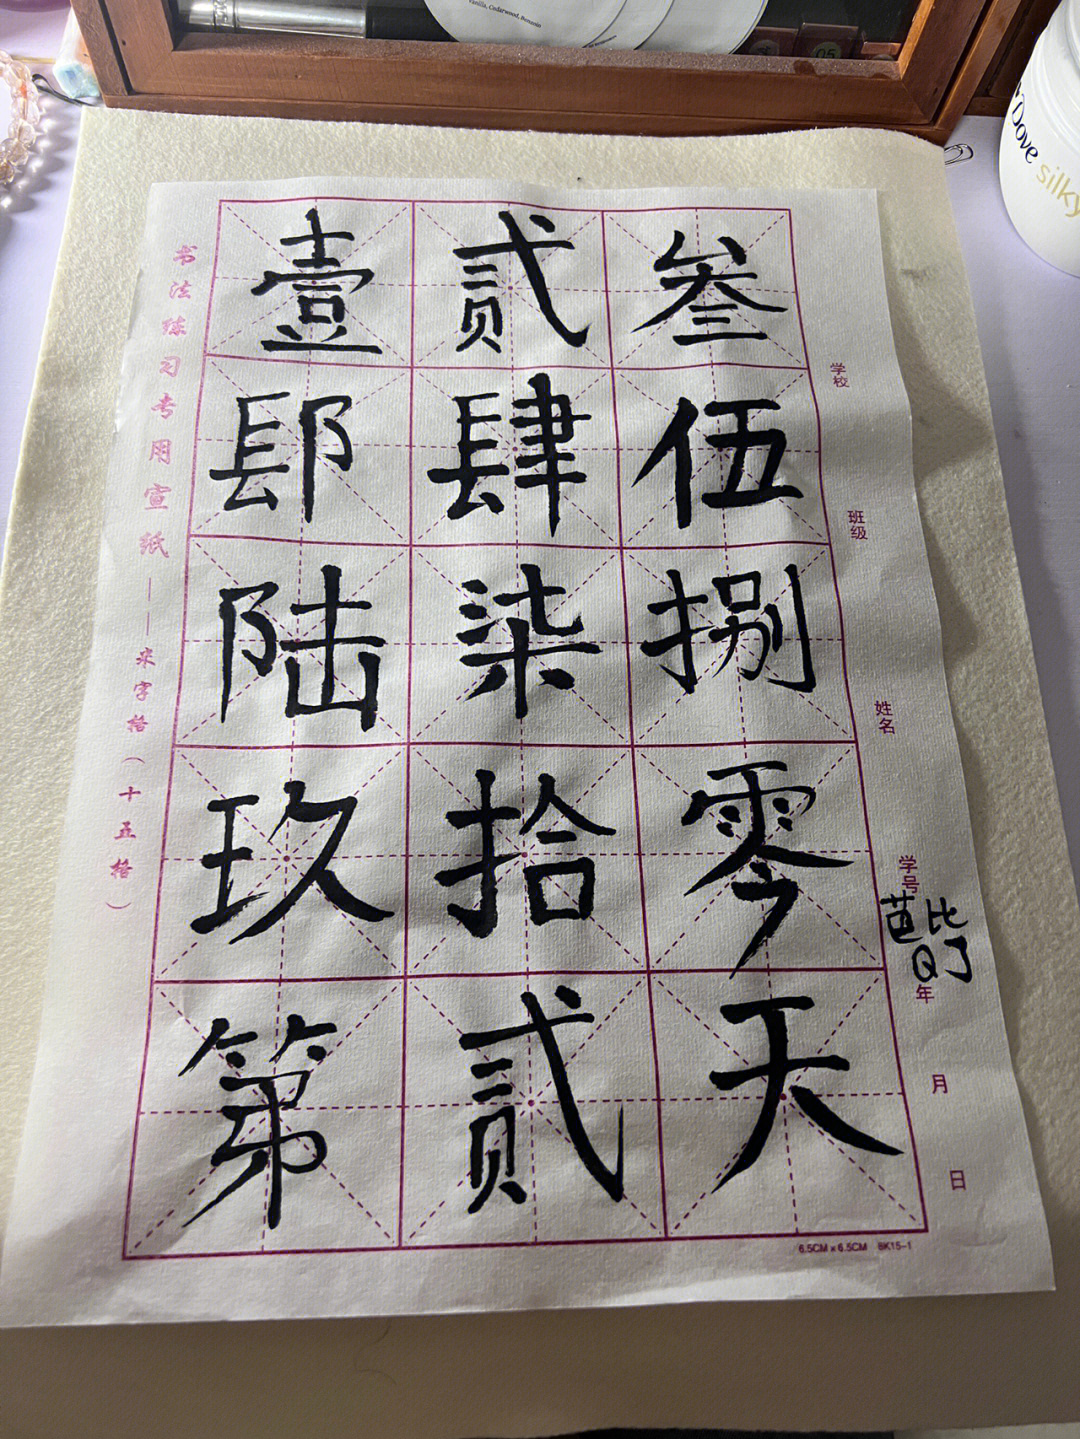 Vanilla, Cedarwood, Benzoin
05
Dove
silky
书法练习专用宣纸——米字格（十五格）
壹贰叁
肆伍
陆柒捌
玖拾零
第贰天
学校
班级
姓名
学号
芭比
Q了
年
月
日
6.5CM x 6.5CM BK15-1